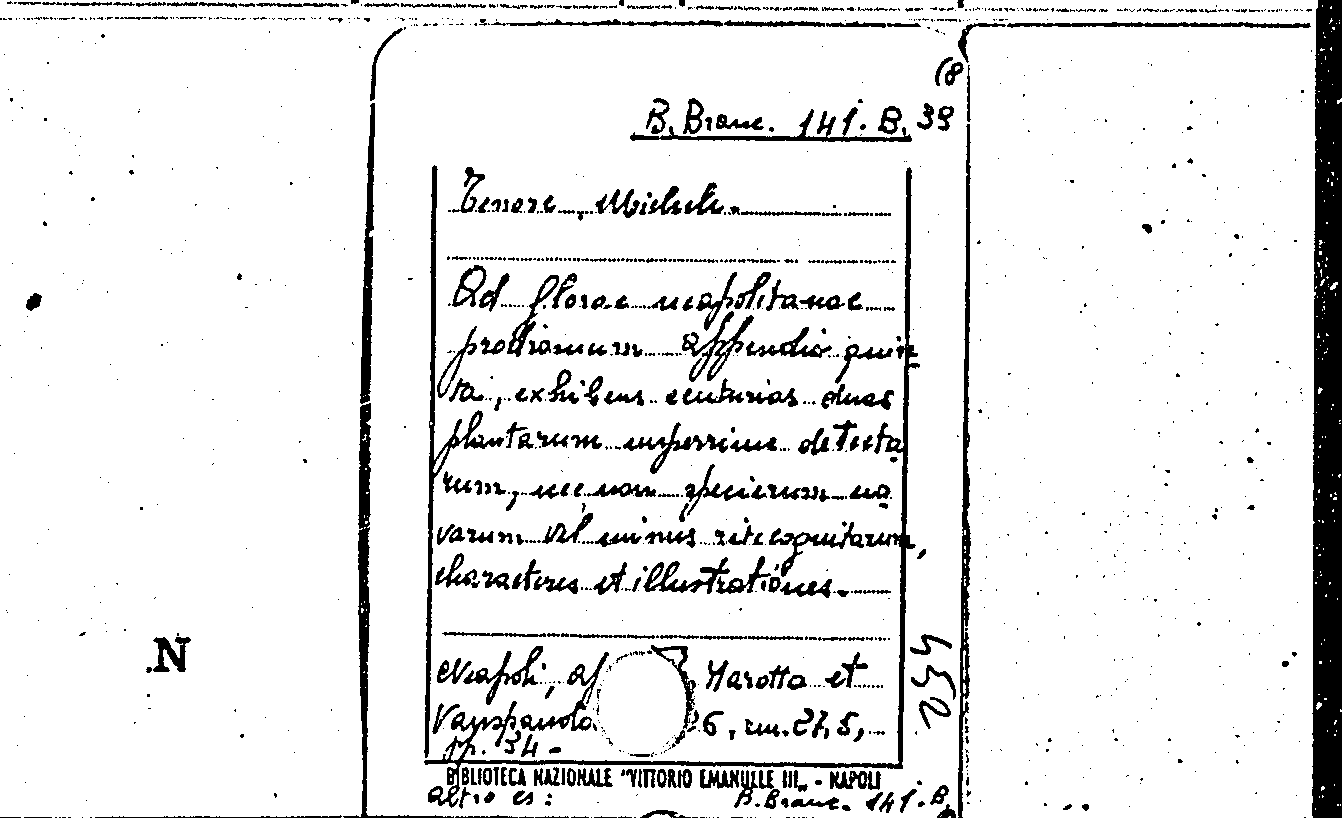 (8
B. Branc. 141. B. 39
Tenore, Michele.
Ad florae neapolitanae
prodromum appendix quin
ta, exhibens centurias duas
plantarum nuperrime detecta
rum, nec non specierum no
varum vel minus rite cognitarum,
characteres et illustrationes.
Neapoli, Marotta et
Vanspando 6, cm. 27,5,
pp. 34 -
BIBLIOTECA NAZIONALE "VITTORIO EMANUELE III" - NAPOLI
altro es: B. Branc. 141. B.
N